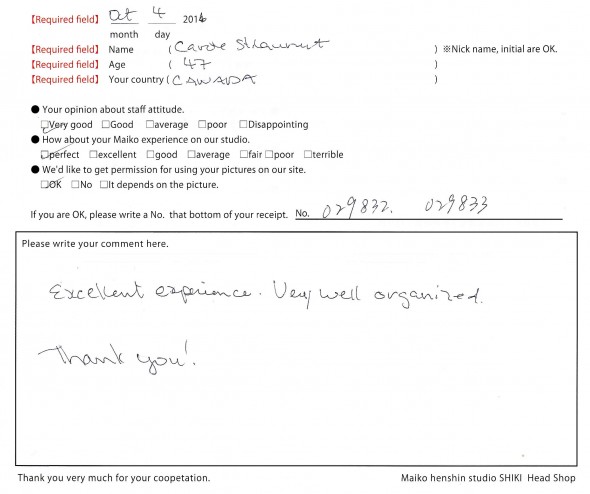 【Required field】 Oct 4 2016
month day
【Required field】 Name (Carole St Laurent) ※Nick name, initial are OK.
【Required field】 Age (47)
【Required field】 Your country (CANADA)
● Your opinion about staff attitude.
☑Very good □Good □average □poor □Disappointing
● How about your Maiko experience on our studio.
☑perfect □excellent □good □average □fair □poor □terrible
● We'd like to get permission for using your pictures on our site.
☑OK □No □It depends on the picture.
If you are OK, please write a No. that bottom of your receipt. No. 029832. 029833
Please write your comment here.
Excellent experience. Very well organized.
Thank you!
Thank you very much for your coopetation. Maiko henshin studio SHIKI Head Shop